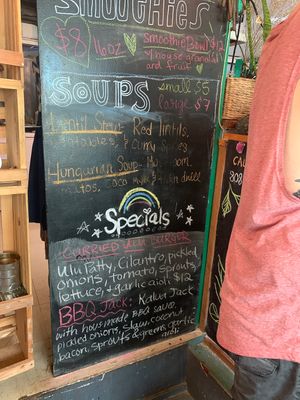 SMOOTHIES
$8 16oz
smoothie Bowl $12
w/ house granola
and fruit
SOUPS
small $5
large $7
Lentil Stew- Red lintils,
vegetables, curry spices
Hungarian Soup- Mushroom,
Coco milk, dill
Specials
CURRIED ULU BURGER
Ulu Patty, Cilantro, pickled
onions, tomato, sprouts,
lettuce, + garlic aioli $12
BBQ Jack: Kalua Jack
with housmade BBQ sauce,
pickled onions, slaw, coconut
bacon, sprouts & greens, garlic
aioli
808